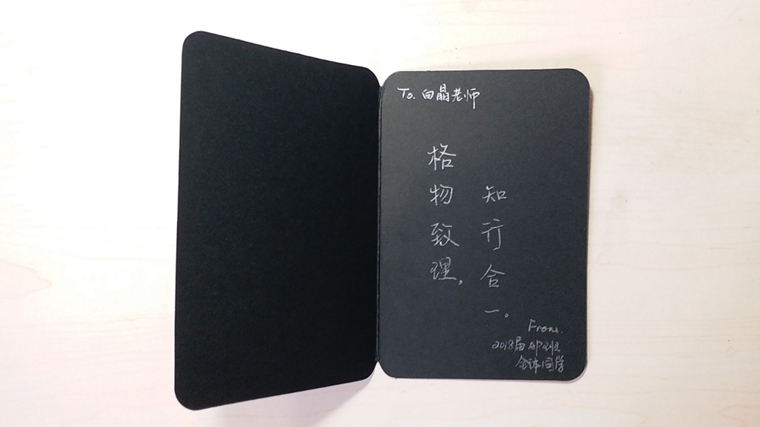 To. 白晶老师
格物致理。
知行合一。
From.
2018届
全体同学